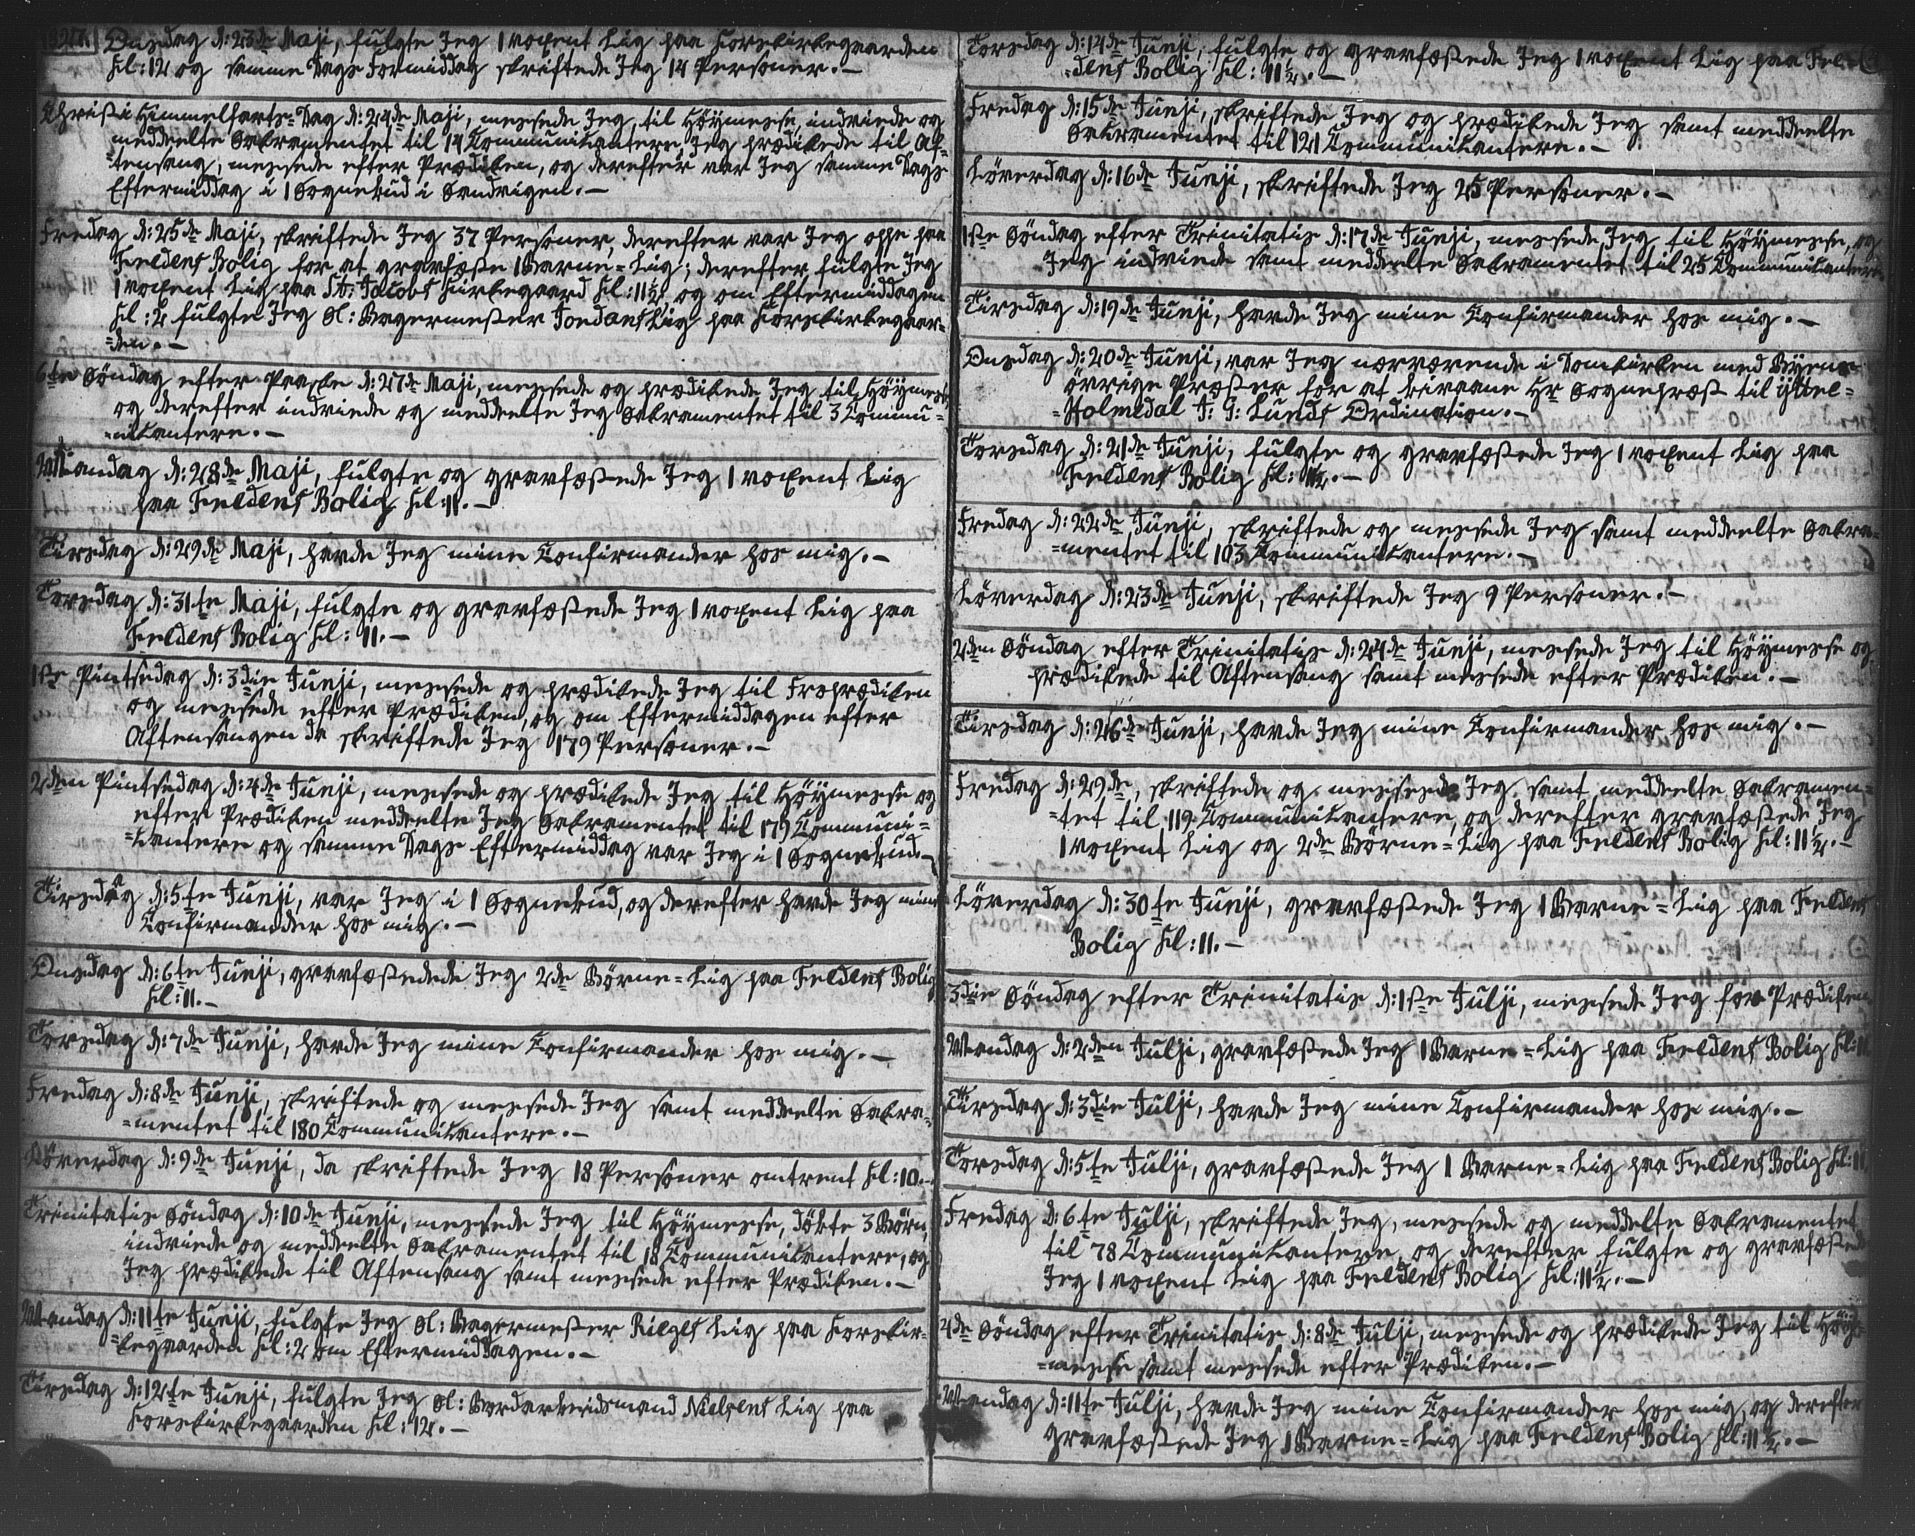 1827. Onsdag d: 23de Maji, fulgte Jeg 1 voxent Lig paa Korskirkegaarden
Kl: 12 og samme Dags Formiddag skriftede Jeg 14 Personer. –
Christi Himmelfarts=Dag d: 24de Maji, messede Jeg, til Höymesse, indviede og
meddeelte Sakramentet til 14 Communikantere, Jeg prædikede til Af=
=tensang, messede efter Prædiken, og derefter var Jeg samme Dags
Eftermiddag i 1 Sognebud i Sandvigen. –
Fredag d: 25de Maji, skriftede Jeg 37 Personer, derefter var Jeg oppe paa
Freldens Bolig for at gravfæste 1 Barne=Lig; derefter fulgte Jeg
1 voxent Lig paa St. Jacobs Kirkegaard Kl: 11½, og om Eftermiddagen
Kl: 2 fulgte Jeg Sl: Bagermester Jordans Lig paa Korskirkegaar=
=den. –
6te Söndag efter Paaske d: 27de Maji, messede og prædikede Jeg til Höymesse,
og derefter indviede og meddeelte Jeg Sakramentet til 3 Commu=
=nikantere. –
Mandag d: 28de Maji, fulgte og gravfæstede Jeg 1 voxent Lig
paa Freldens Bolig Kl: 11. –
Tirsdag d: 29de Maji, havde Jeg mine Confirmander hos mig. –
Torsdag d: 31te Maji, fulgte og gravfæstede Jeg 1 voxent Lig paa
Freldens Bolig Kl: 11. –
1ste Pintsedag d: 3die Junji, messede og prædikede Jeg til Froprædiken
og messede efter Prædiken, og om Eftermiddagen efter
Aftensangen da skriftede Jeg 179 Personer. –
2den Pintsedag d: 4de Junji, messede og prædikede Jeg til Höymesse og
efter Prædiken meddeelte Jeg Sakramentet til 179 Communi=
=kantere og samme Dags Eftermiddag var Jeg i 1 Sognebud. –
Tirsdag d: 5te Junji, var Jeg i 1 Sognebud, og derefter havde Jeg mine
Confirmander hos mig. –
Onsdag d: 6te Junji, gravfæstedede Jeg 2de Börne=Lig paa Freldens Bolig
Kl: 11. –
Torsdag d: 7de Junji, havde Jeg mine Confirmander hos mig. –
Fredag d: 8de Junji, skriftede og messede Jeg samt meddeelte Sakra=
=mentet til 180 Communikantere. –
Löverdag d: 9de Junji, da skriftede Jeg 18 Personer omtrent Kl: 10. –
Trinitatis Söndag d: 10de Junji, messede Jeg til Höymesse, döbte 3 Börn,
indviede og meddeelte Sakramentet til 18 Communikantere, og
Jeg prædikede til Aftensang samt messede efter Prædiken. –
Mandag d: 11te Junji, fulgte Jeg Sl: Bagermester Riegels Lig paa Korskir=
=kegaarden Kl: 2 om Eftermiddagen. –
Tirsdag d: 12te Junji, fulgte Jeg Sl: Bordarbeidsmand Nielsens Lig paa
Korskirkegaarden Kl: 12. –
Torsdag d: 14de Junji, fulgte og gravfæstede Jeg 1 voxent Lig paa Frel=
=dens Bolig Kl: 11½. –
Fredag d: 15de Junji, skriftede Jeg og prædikede Jeg samt meddeelte
Sakramentet til 121 Communikantere. –
Löverdag d: 16de Junji, skriftede Jeg 25 Personer. –
1ste Söndag efter Trinitatis d: 17de Junji, messede Jeg til Höymesse, og
Jeg indviede samt meddeelte Sakramentet til 25 Communikantere.
Tirsdag d: 19de Junji, havde Jeg mine Confirmander hos mig. –
Onsdag d: 20de Junji, var Jeg nærværende i Domkirken med Byens
övrige Præster for at bivaane Hr Sognepræst til Yttre=
=Holmedal J: G: Lunds Ordination. –
Torsdag d: 21de Junji, fulgte og gravfæstede Jeg 1 voxent Lig paa
Freldens Bolig Kl: 11½. –
Fredag d: 22de Junji, skriftede og messede Jeg samt meddeelte Sakra=
=mentet til 103 Communikantere. –
Löverdag d: 23de Junji, skriftede Jeg 9 Personer. –
2den Söndag efter Trinitatis d: 24de Junji, messede Jeg til Höymesse og
prædikede til Aftensang samt messede efter Prædiken. –
Tirsdag d: 26de Junji, havde Jeg mine Confirmander hos mig. –
Fredag d: 29de, skriftede og messede Jeg samt meddeelte Sakramen=
=tet til 119 Communikantere, og derefter gravfæstede Jeg
1 voxent Lig og 2de Börne=Lig paa Freldens Bolig Kl: 11½. –
Löverdag d: 30te Junji, gravfæstede Jeg 1 Barne=Lig paa Freldens
Bolig Kl: 11. –
3die Söndag efter Trinitatis d: 1ste Julji, messede Jeg for Prædiken
Mandag d: 2den Julji, gravfæstede Jeg 1 Barne=Lig paa Freldens Bolig Kl: 11
Tirsdag d: 3die Julji, havde Jeg mine Confirmander hos mig. –
Torsdag d: 5te Julji, gravfæstede Jeg 1 Barne=Lig paa Freldens Bolig Kl: 11
Fredag d: 6te Julji, skriftede Jeg, messede og meddelte Sakramentet
til 78 Communikantere, og derefter fulgte og gravfæstede
Jeg 1 voxent Lig paa Freldens Bolig Kl: 11½. –
4de Söndag efter Trinitatis d: 8de Julji, messede og prædikede Jeg til Höy=
=messe samt messede efter Prædiken. –
Mandag d: 11te Julji, havde Jeg mine Confirmander hos mig, og derefter
gravfæstede Jeg 1 Barne=Lig paa Freldens Bolig Kl: 11½. –